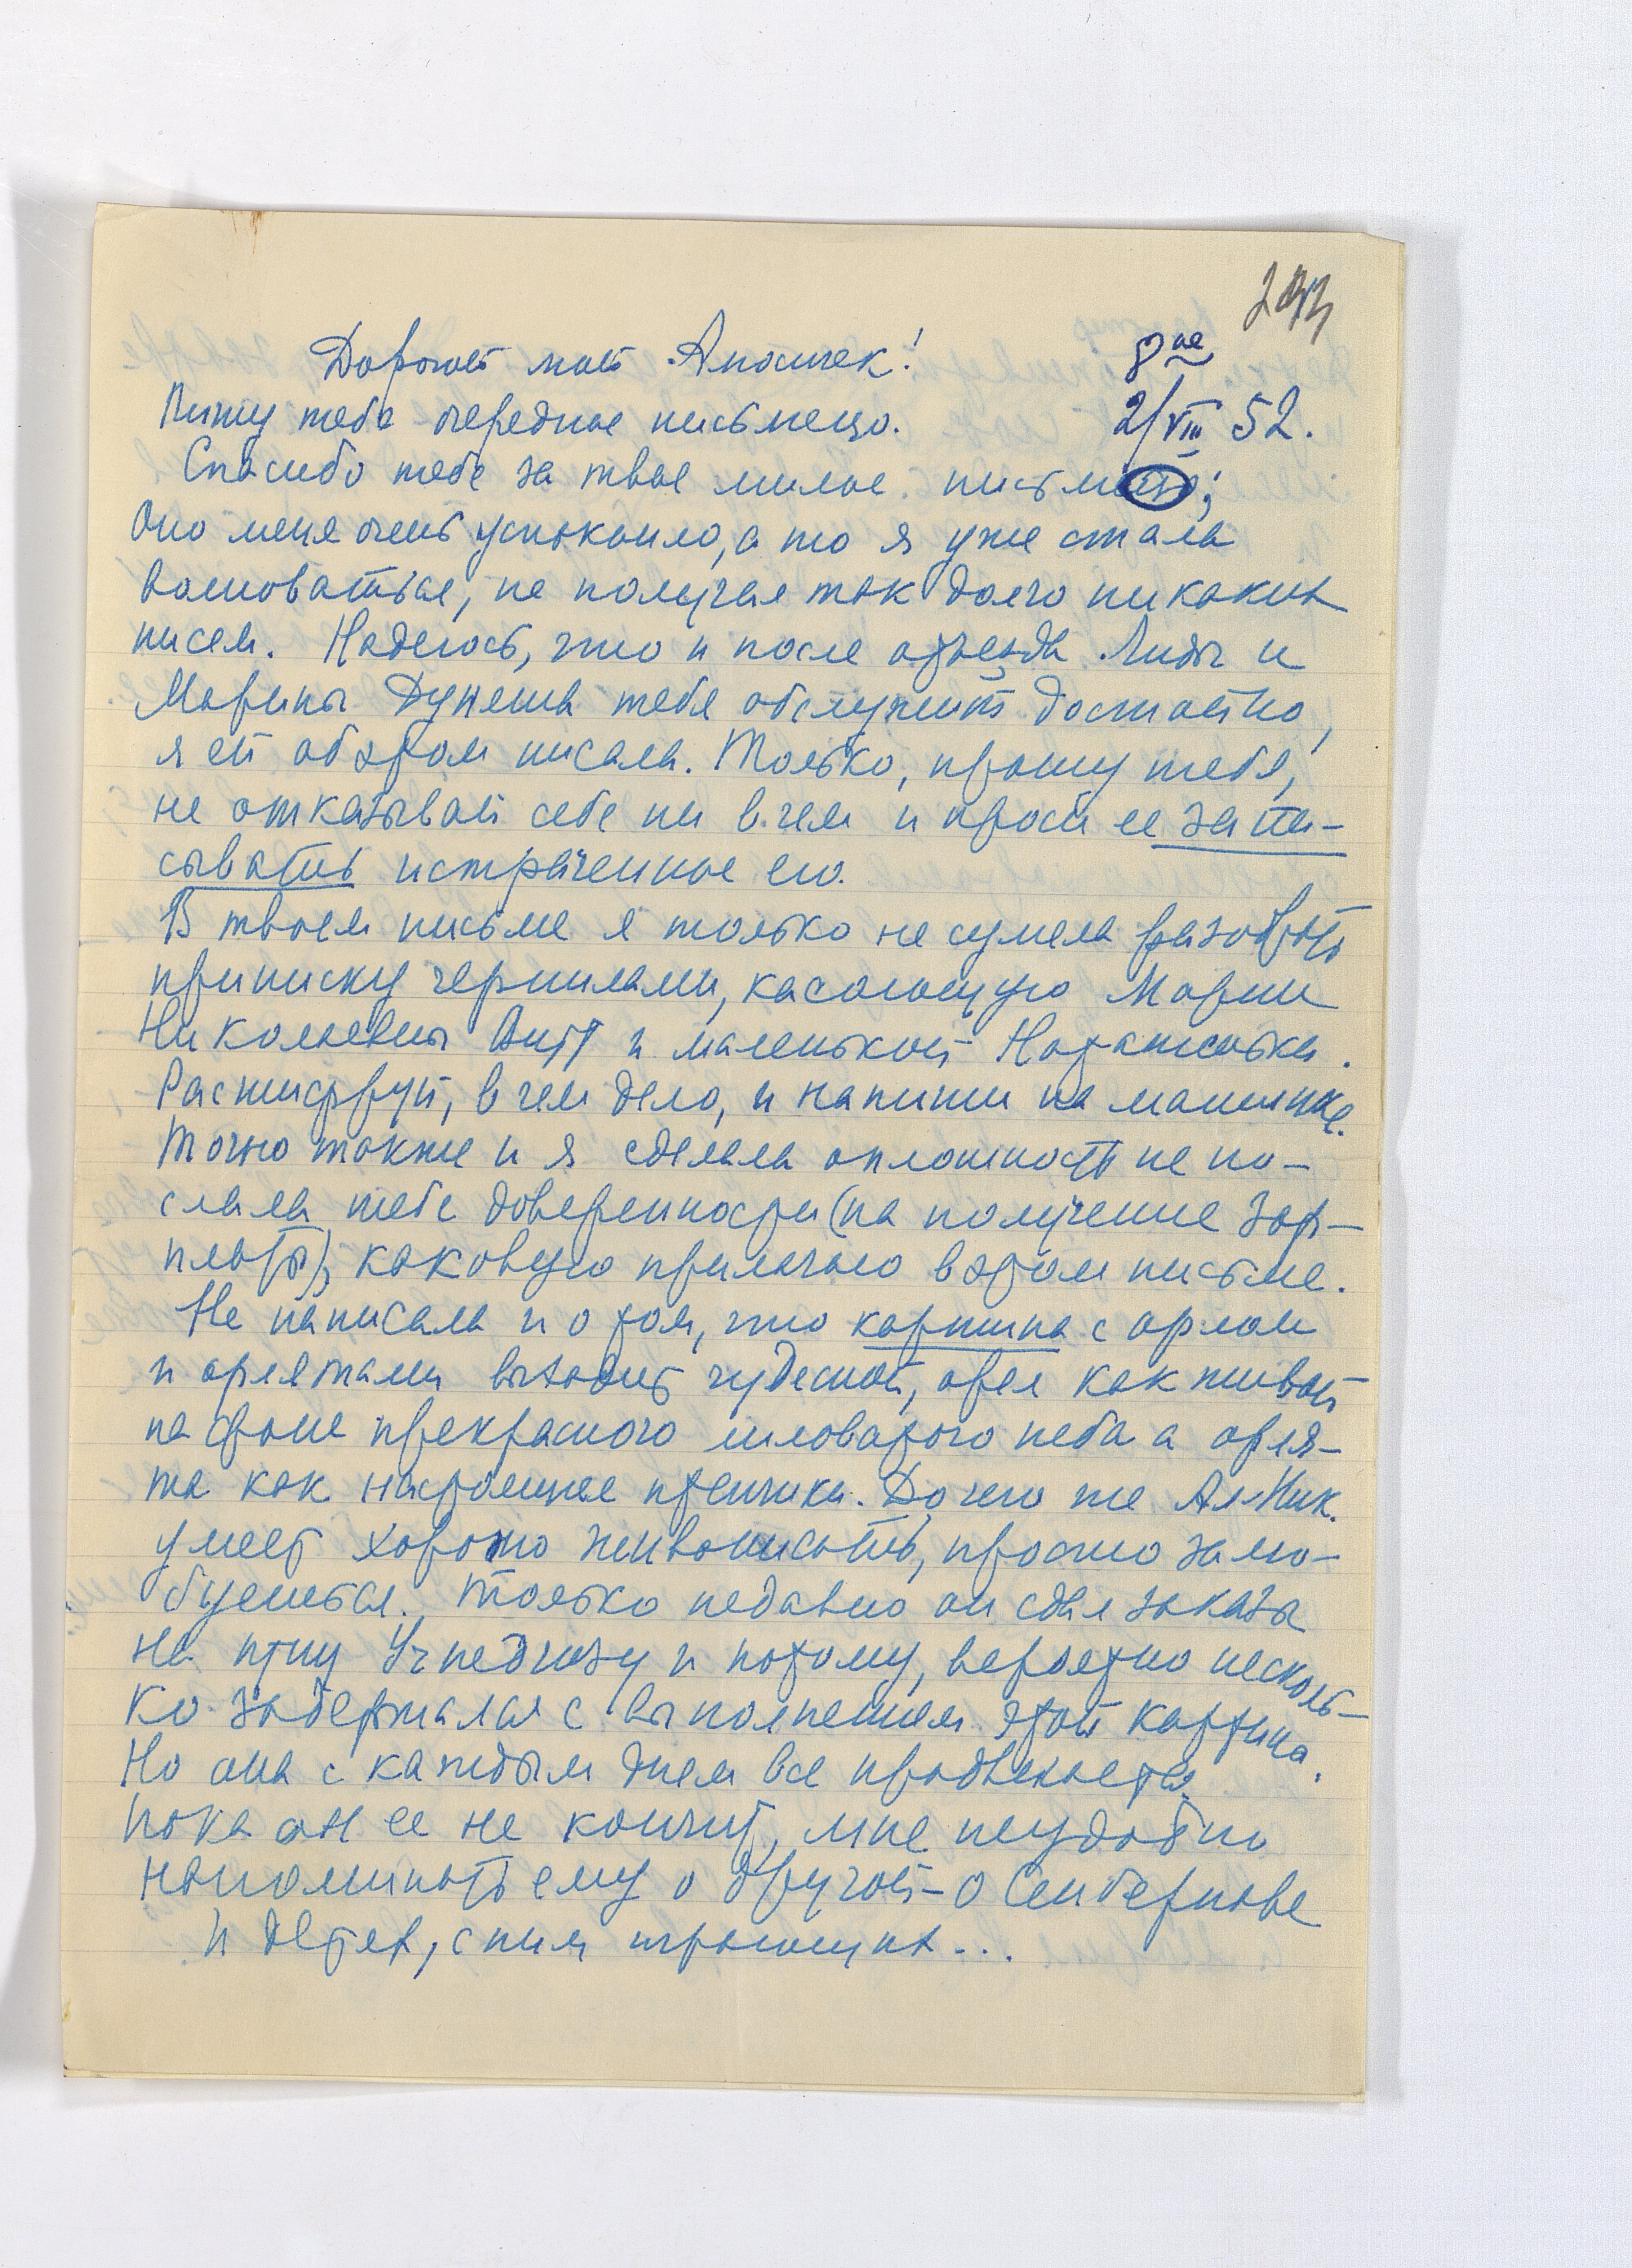 293
Дорогой мой Апосичек! 8ое
Пишу тебе очередное письмецо. 2/VIII 52.
Спасибо тебе за твое милое письмо;
Оно меня очень успокоило, а то я уже стала
волноваться, не получая так долго никаких
писем. Надеюсь, что и после отъезда Лиды и
Марины Дуняша тебя обслужит достойно,
я ей об этом писала. Только, прошу тебя,
не отказывай себе ни в чем и проси ее запи-
сывать истраченное ею.
В твоем письме я только не сумела разобрать
приписку чернилами, касающуюся Марии
Николаевны Витт и маленькой Наташеньки.
Расшифруй, в чем дело, и напиши на машинке.
Точно также и я сделала оплошность не по-
слала тебе доверенности (на получение зар-
платы), каковую прилагаю в этом письме.
Не написала и о том, что картина с орлом
и орлятами выходит чудесной, орел как живой
на фоне прекрасного лиловатого неба а орля-
та как настоящие птенчики. До чего же Ал. Ник.
умеет хорошо живописать, просто залю-
буешься. Только недавно он сдал заказы
на птиц Учпедгизу и потому, вероятно несколь-
ко задержался с выполнением этой картины.
Но она с каждым днем все продвигается
пока он ее не кончит, мне неудобно
напоминать ему о другой – о Сенбернаре
и детях, с ним играющих...